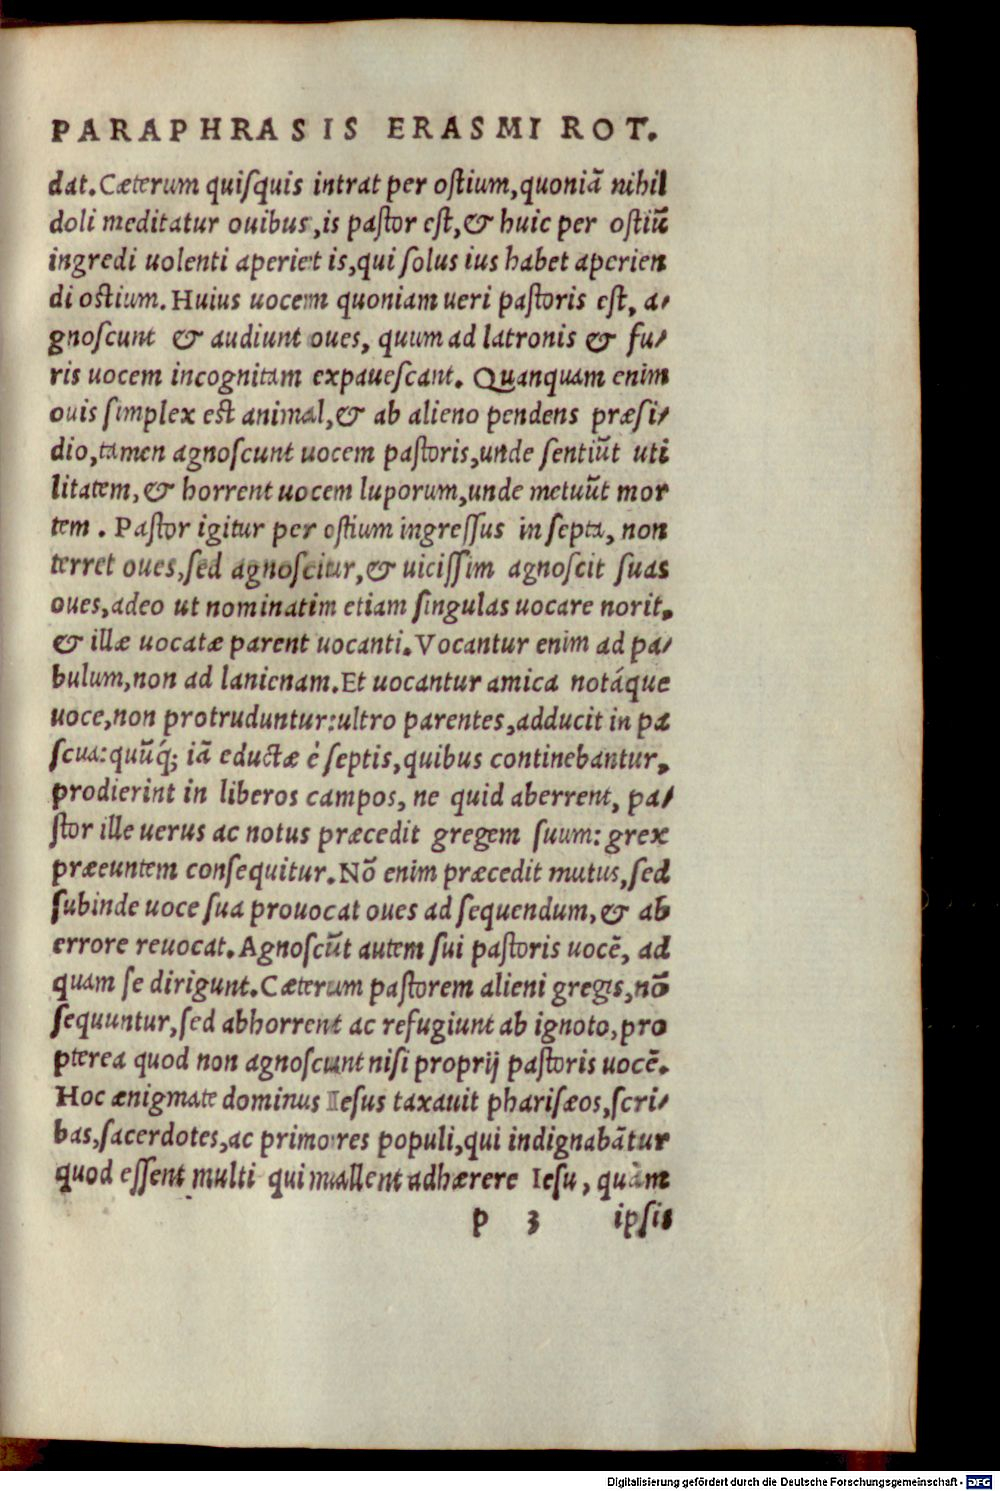 PARAPHRASIS ERASMI ROT.
dat. Cæterum quiſquis intrat per oſtium, quoniã nihil
doli meditatur ouibus, is paſtor eſt, & huic per oſtiũ
ingredi uolenti aperiet is, qui ſolus ius habet aperien
di oſtium. Huius uocem quoniam ueri paſtoris eſt, a-
gnoſcunt & audiunt oues, quum ad latronis & fu-
ris uocem incognitam expaueſcant. Quanquam enim
ouis ſimplex eſt animal, & ab alieno pendens præſi-
dio, tamen agnoſcunt uocem paſtoris, unde ſentiũt uti
litatem, & horrent uocem luporum, unde metuũt mor
tem. Paſtor igitur per oſtium ingreſſus in ſepta, non
terret oues, ſed agnoſcitur, & uiciſſim agnoſcit ſuas
oues, adeo ut nominatim etiam ſingulas uocare norit,
& illæ uocatæ parent uocanti. Vocantur enim ad pa-
bulum, non ad lanienam. Et uocantur amica notáque
uoce, non protruduntur: ultro parentes, adducit in pa
ſcua: quũq́; iã eductæ è ſeptis, quibus continebantur,
prodierint in liberos campos, ne quid aberrent, pa-
ſtor ille uerus ac notus præcedit gregem ſuum: grex
præeuntem conſequitur. Nõ enim præcedit mutus, ſed
ſubinde uoce ſua prouocat oues ad ſequendum, & ab
errore reuocat. Agnoſcũt autem ſui paſtoris uocẽ, ad
quam ſe dirigunt. Cæterum paſtorem alieni gregis, nõ
ſequuntur, ſed abhorrent ac refugiunt ab ignoto, pro
pterea quod non agnoſcunt niſi proprij paſtoris uocẽ.
Hoc ænigmate dominus Ieſus taxauit phariſæos, ſcri-
bas, ſacerdotes, ac primores populi, qui indignabãtur
quod eſſent multi qui mallent adhærere Ieſu, quàm
p 3 ipſis
Digitalisierung gefördert durch die Deutsche Forschungsgemeinschaft - DFG